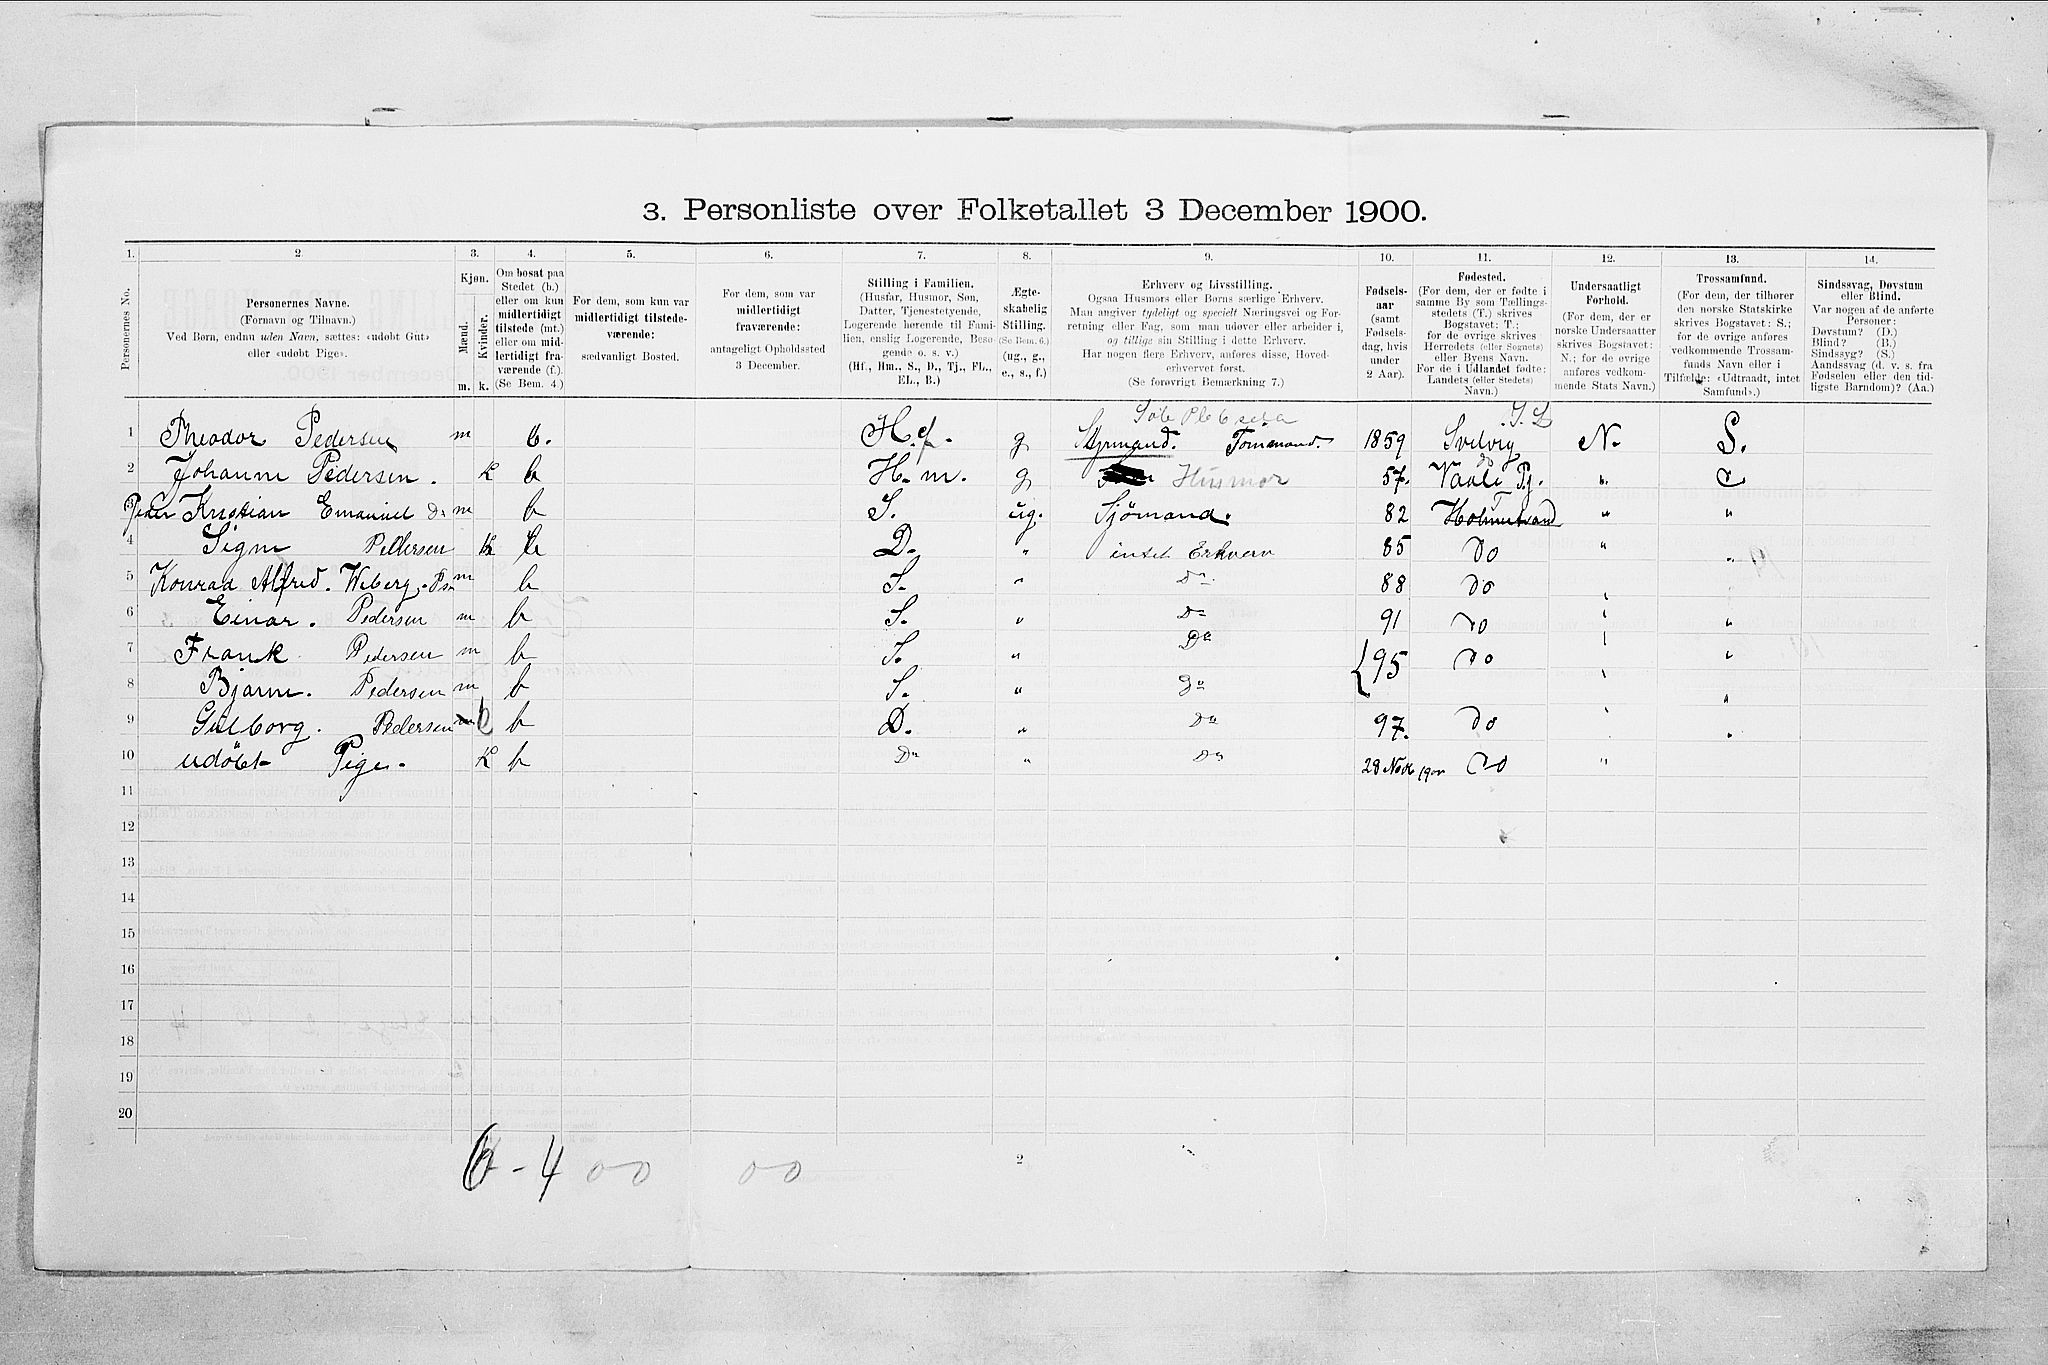 3. Personliste over Folketallet 3 December 1900.
1. 2. 3. 4. 5. 6. 7. 8. 9. 10. 11. 12. 13. 14.
Personernes No.
Personernes Navne.
(Fornavn og Tilnavn.)
Ved Børn, endnu uden Navn, sættes: «udøbt Gut»
eller «udøbt Pige».
Kjøn.
Mænd.
Kvinder.
m. k.
Om bosat paa
Stedet (b.)
eller om kun
midlertidigt
tilstede (mt.)
eller om mid-
lertidigt fra-
værende (f.)
(Se Bem. 4.)
For dem, som kun var
midlertidigt tilstede-
værende:
sedvanligt Bosted.
For dem, som var
midlertidigt
fraværende:
antageligt Opholdssted
3 December.
Stilling i Familien.
(Husfar, Husmor, Søn,
Datter, Tjenestetyende,
Logerende hørende til Fami-
lien, enslig Logerende, Besø-
gende o. s. v.)
(Hf., Hm., S., D., Tj., FL.,
EL., B.)
Ægte-
skabelig
Stilling.
(Se Bem. 6.)
(ug., g.,
e., s., f.)
Erhverv og Livsstilling.
Ogsaa Husmors eller Børns særlige Erhverv.
Man angiver tydeligt og specielt Næringsvei og For-
retning eller Fag, som man udøver eller arbeider i,
og tillige sin Stilling i dette Erhverv.
Har nogen flere Erhverv, anføres disse, Hoved-
erhvervet først.
(Se forøvrigt Bemærkning 7.)
Fødsels-
aar
(samt
Fødsels-
dag, hvis
under
2 Aar).
Fødested.
(For dem, der er fødte i
samme By som Tællings-
stedets (T.) skrives
Bogstavet: T.;
for de øvrige skrives
Herredets (eller Sognets)
eller Byens Navn.
For de i Udlandet fødte:
Landets (eller Stedets)
Navn.)
Undersaatligt
Forhold.
(For dem, der er
norske Undersaatter
skrives Bogstavet:
N.; for de øvrige
anføres vedkom-
mende Stats Navn.)
Trossamfund.
(For dem, der tilhører
den norske Statskirke
skrives Bogstavet: S.;
for de øvrige anføres
vedkommende Trossam-
funds Navn eller i
Tilfælde: «Udtraadt, intet
Samfund».)
Sindssvag, Døvstum
eller Blind.
Var nogen af de anførte
Personer:
Døvstum? (D.)
Blind? (B.)
Sindssyg? (S.)
Aandssvag (d. v. s. fra
Fødselen eller den tid-
ligste Barndom)? (Aa.)
1 Theodor Pedersen m b. H.f. g Styrmand. Tømmand. 1859 Svelvig N. S.
2 Johanne Pedersen. k b H.m. g Husmor 57. Vaale Pg. "
Peder Kristian Emanuel Do m b S. ug. Sjømand. 82 Holmestrand T " "
4 Signe Pedersen k b D. " intet Erhverv 85 Do " "
5 Konrad Alfred. Wiberg. Ps m b S. " Do 88 Do " "
6 Einar. Pedersen m b S. " Do 91 Do " "
7 Frank Pedersen m b S. " Do { 95 Do " "
8 Bjarne. Pedersen m b S. " Do " "
9 Gulborg. Pedersen k b D. " Do 97. Do " "
10 udøbt Pige. k b Do " Do 28 Novb 1900 Do "
11
12
13
14
15
16
17
18
19
20
6 - 4 00 00
2